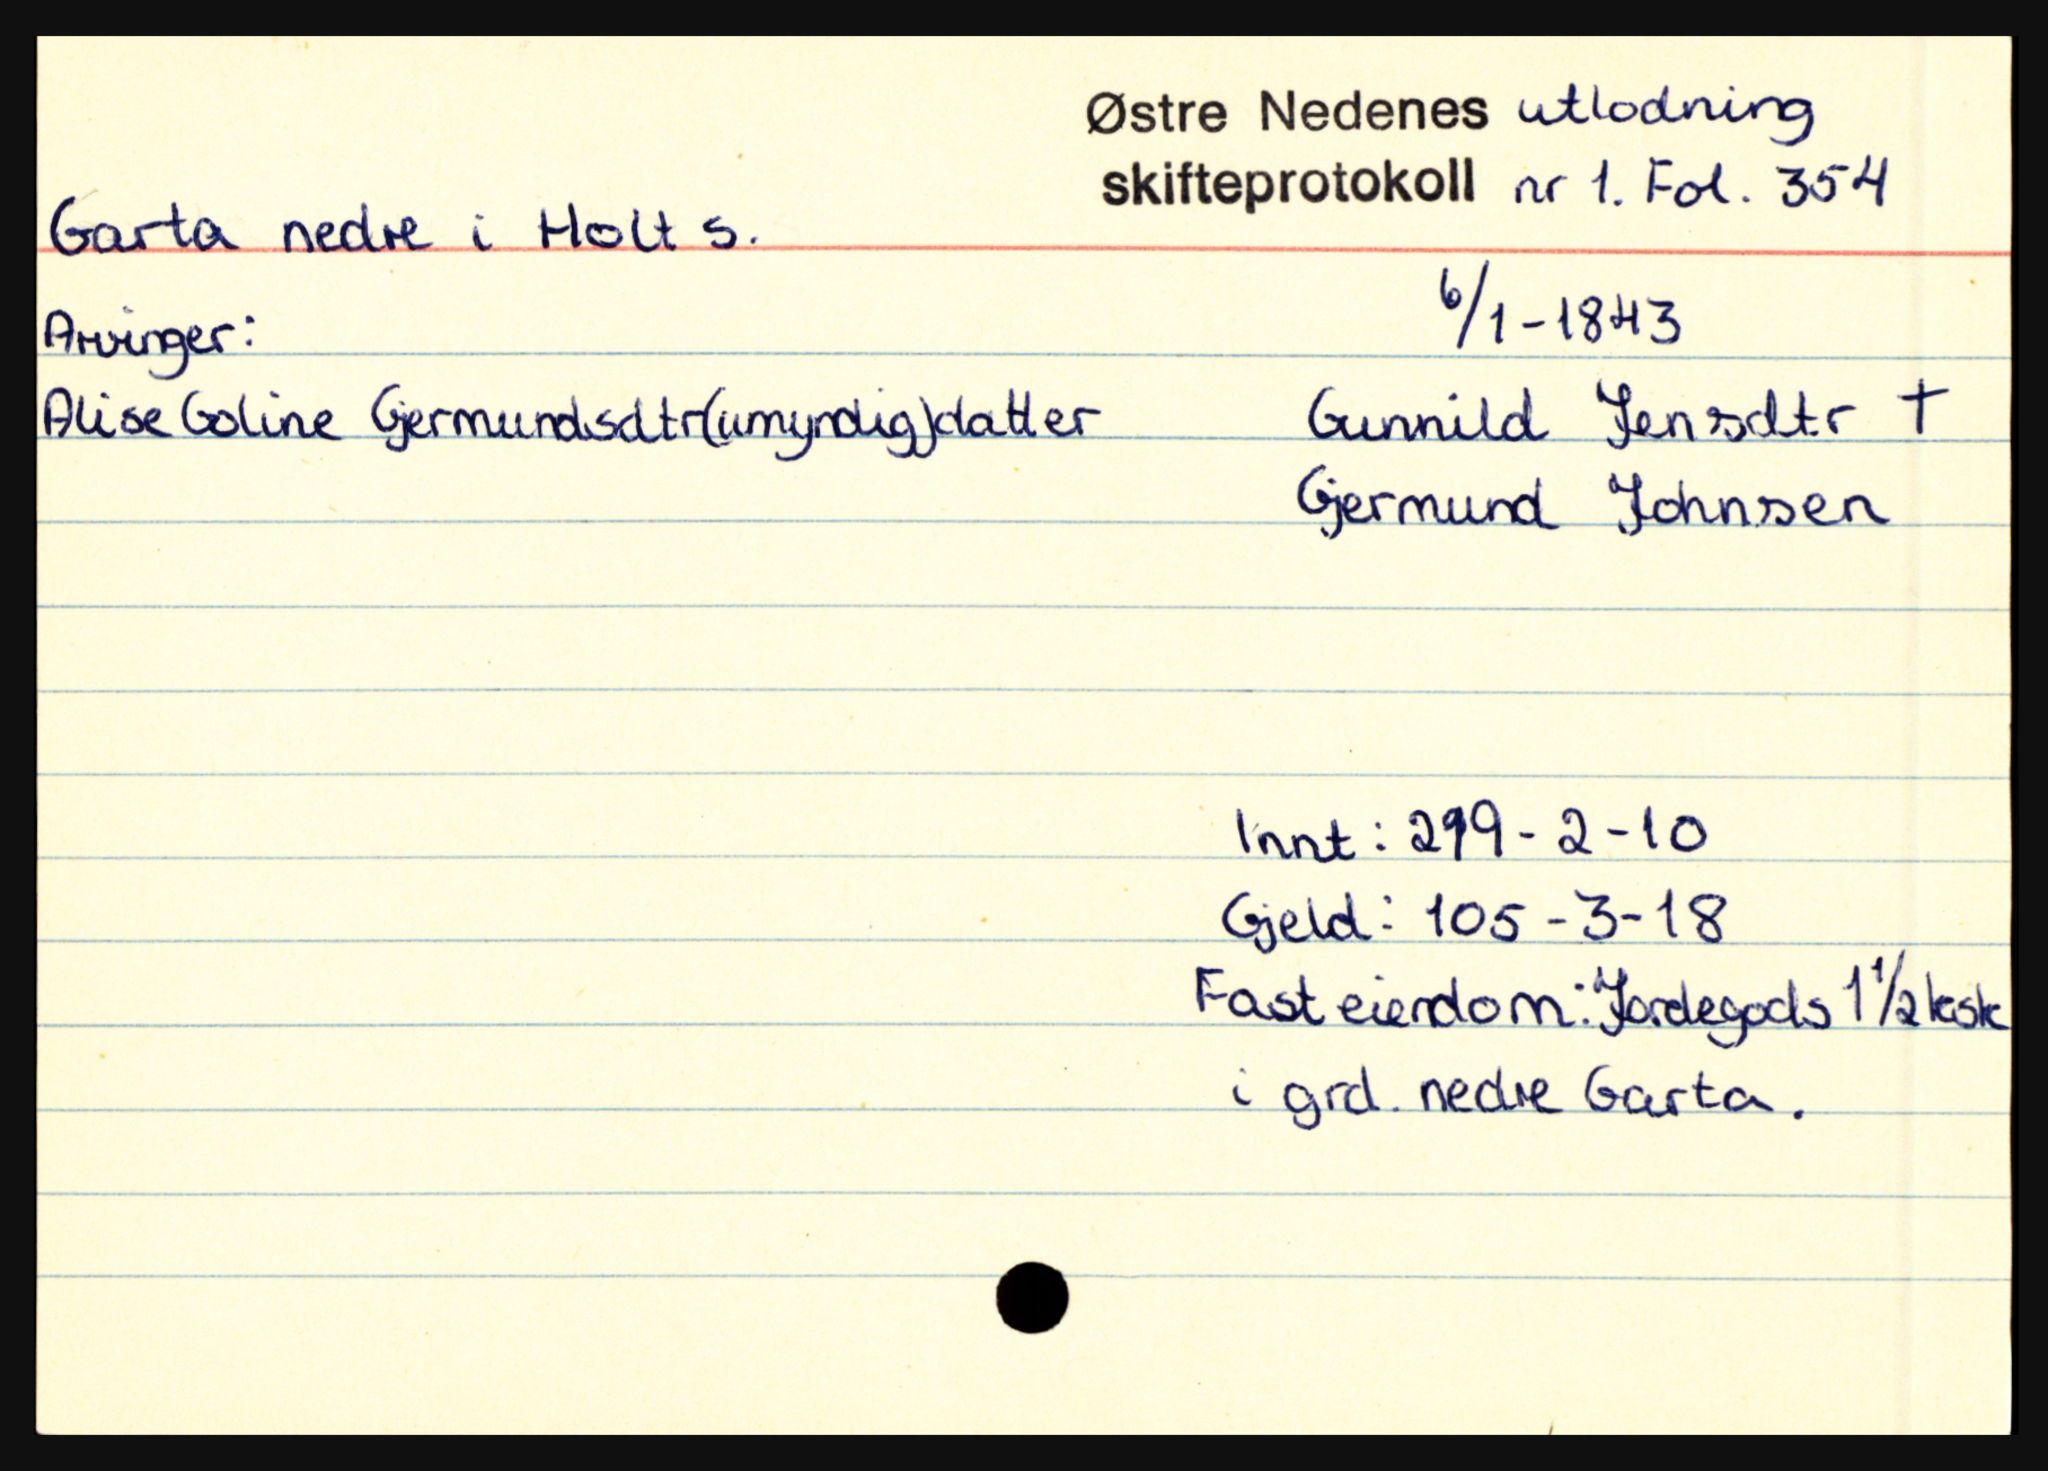 Østre Nedenes utlodning
skifteprotokoll nr 1. Fol. 354
Garta nedre i Holt s.
6/1-1843
Arvinger:
Alise Goline Gjermundsdtr(umyndig)datter
Gunnild Jensdtr †
Gjermund Johnsen
Innt: 299-2-10
Gjeld: 105-3-18
Fast eiendom: Jordegods 1 1/2 ksk
i grd. nedre Garta.